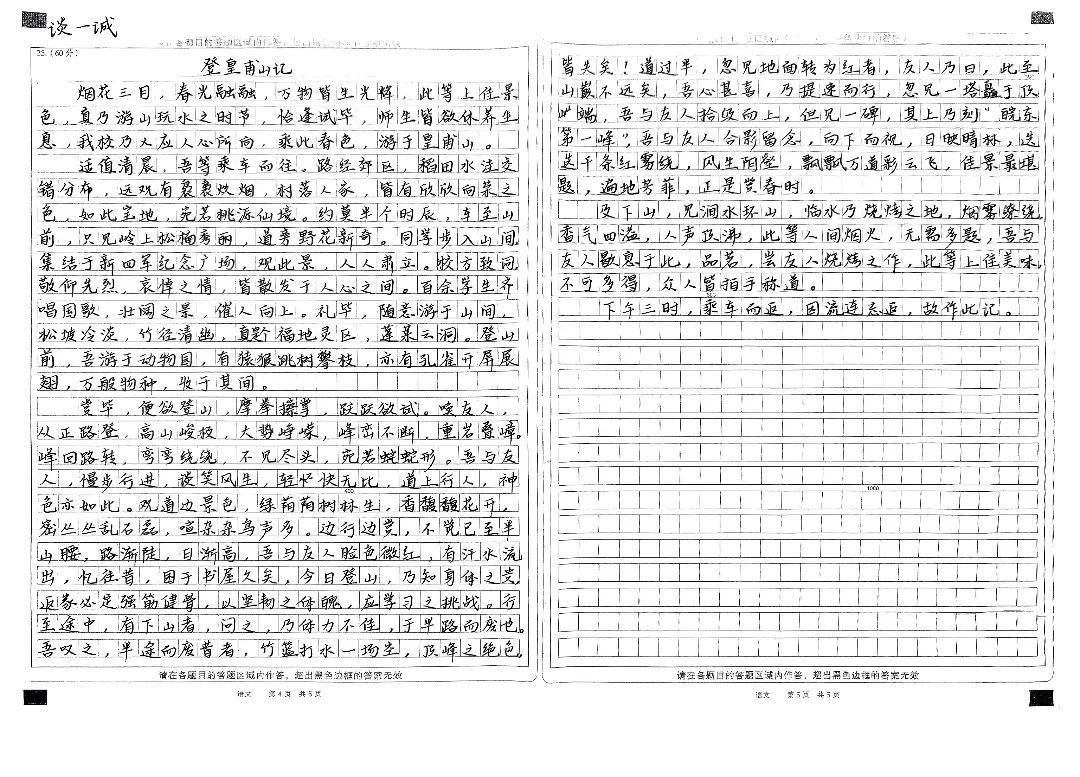 谈一诚
23.(60分)
登皇甫山记
烟花三月，春光融融，万物皆生光辉，此等上佳景
色，真乃游山玩水之时节，恰逢试毕，师生皆欲休养生
息，我校乃大应人心所向，乘此春色，游于皇甫山。
适值清晨，吾等乘车而往。路经郊区，稻田水洼交
错分布，远观有袅袅炊烟，村落人家，皆有欣欣向荣之
色，如此宝地，宛若桃源仙境。约莫半个时辰，车至山
前，只见岭上松楠秀丽，道旁野花新奇。同学步入山间
集结于新四军纪念广场，观此景，人人肃立。校方致词
敬仰先烈，哀悼之情，皆散发于人心之间。百余学生齐
唱国歌，壮阔之景，催人向上。礼毕，随意游于山间，
松坡冷淡，竹径清幽，真黔福地灵区，蓬莱云洞。登山
前，吾游于动物园，有猿猴跳树攀枝，亦有孔雀开屏展
翅，万般物种，收于其间。
赏毕，便欲登山，摩拳擦掌，跃跃欲试。唤友人，
从正路登，高山峻极，大势峥嵘，峰峦不断，重岩叠嶂。
峰回路转，弯弯绕绕，不见尽头，宛若蜿蛇形。吾与友
人，慢步行进，谈笑风生，轻松快无比，道上行人，神
色亦如此。观道边景色，绿荫荫树林生，香馥馥花开，
密丛丛乱石磊，喧杂杂鸟声多。边行边赏，不觉已至半
山腰，路渐陡，日渐高，吾与友人脸色微红，有汗水流
出，忆往昔，困于书屋久矣，今日登山，乃知身体之差，
返家必定强筋健骨，以坚韧之体魄，应学习之挑战。行
至途中，有下山者，问之，乃体力不佳，于半路而废也。
吾叹之，半途而废昔者，竹篮打水一场空，顶峰之绝色，
请在各题目的答题区域内作答，超出黑色边框的答案无效
语文 第4页 共5页
皆失矣！道过半，忽见地面转为红者，友人乃曰，此至
山巅不远矣，吾心甚喜，乃提速而行，忽见一塔矗于顶
端，吾与友人拾级而上，但见一碑，其上乃刻“皖东
第一峰”，吾与友人合影留念，向下而视，日映晴林，迭
迭千条红雾绕，风生阴壑，飘飘万道彩云飞，佳景最堪
题，遍地芳菲，正是赏春时。
及下山，见涧水环山，临水乃烧烤之地，烟雾缭绕
香气四溢，人声顶沸，此等人间烟火，无需多题，吾与
友人歇息于此，品茗，尝友人烧烤之作，此等上佳美味，
不可多得，众人皆拍手称道。
下午三时，乘车而返，因流连忘返，故作此记。
1000
请在各题目的答题区域内作答，超出黑色边框的答案无效
语文 第5页 共5页